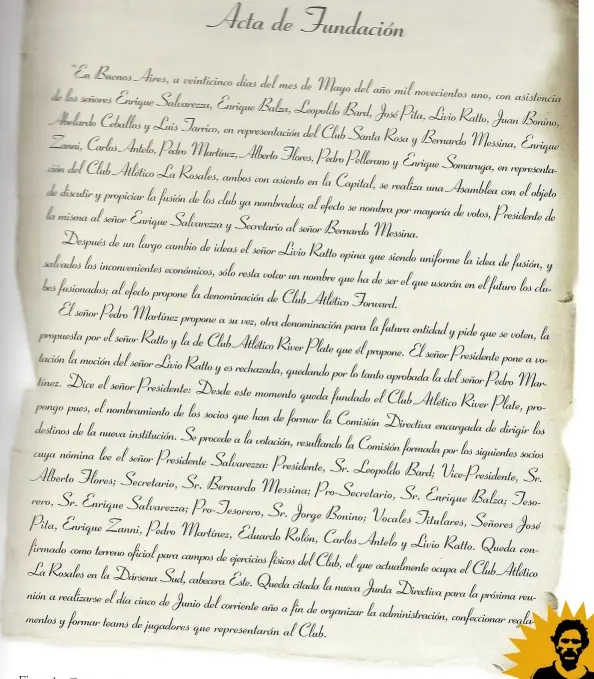 Acta de Fundación
"En Buenos Aires, a veinticinco días del mes de Mayo del año mil novecientos uno, con asistencia
de los señores Enrique Salvarezza, Enrique Balza, Leopoldo Bard, José Pita, Livio Ratto, Juan Bonino,
Abelardo Ceballos y Luis Jarrico, en representación del Club Santa Rosa y Bernardo Messina, Enrique
Zanni, Carlos Antelo, Pedro Martínez, Alberto Flores, Pedro Pellerano y Enrique Somaruga, en representa-
ción del Club Atlético La Rosales, ambos con asiento en la Capital, se realiza una Asamblea con el objeto
de discutir y propiciar la fusión de los club ya nombrados; al efecto se nombra por mayoría de votos, Presidente de
la misma al señor Enrique Salvarezza y Secretario al señor Bernardo Messina.
Después de un largo cambio de ideas el señor Livio Ratto opina que siendo uniforme la idea de fusión, y
salvados los inconvenientes económicos, sólo resta votar un nombre que ha de ser el que usarán en el futuro los clu-
bes fusionados; al efecto propone la denominación de Club Atlético Forward.
El señor Pedro Martínez propone a su vez, otra denominación para la futura entidad y pide que se voten, la
propuesta por el señor Ratto y la de Club Atlético River Plate que él propone. El señor Presidente pone a vo-
tación la moción del señor Livio Ratto y es rechazada, quedando por lo tanto aprobada la del señor Pedro Mar-
tínez. Dice el señor Presidente: Desde este momento queda fundado el Club Atlético River Plate, pro-
pongo pues, el nombramiento de los socios que han de formar la Comisión Directiva encargada de dirigir los
destinos de la nueva institución. Se procede a la votación, resultando la Comisión formada por los siguientes socios
cuya nómina lee el señor Presidente Salvarezza: Presidente, Sr. Leopoldo Bard; Vice-Presidente, Sr.
Alberto Flores; Secretario, Sr. Bernardo Messina; Pro-Secretario, Sr. Enrique Balza; Teso-
rero, Sr. Enrique Salvarezza; Pro-Tesorero, Sr. Jorge Bonino; Vocales Titulares, Señores José
Pita, Enrique Zanni, Pedro Martínez, Eduardo Rolón, Carlos Antelo y Livio Ratto. Queda con-
firmado como terreno oficial para campos de ejercicios físicos del Club, el que actualmente ocupa el Club Atlético
La Rosales en la Dársena Sud, cabecera Este. Queda citada la nueva Junta Directiva para la próxima reu-
nión a realizarse el día cinco de Junio del corriente año a fin de organizar la administración, confeccionar regla-
mentos y formar teams de jugadores que representarán al Club.